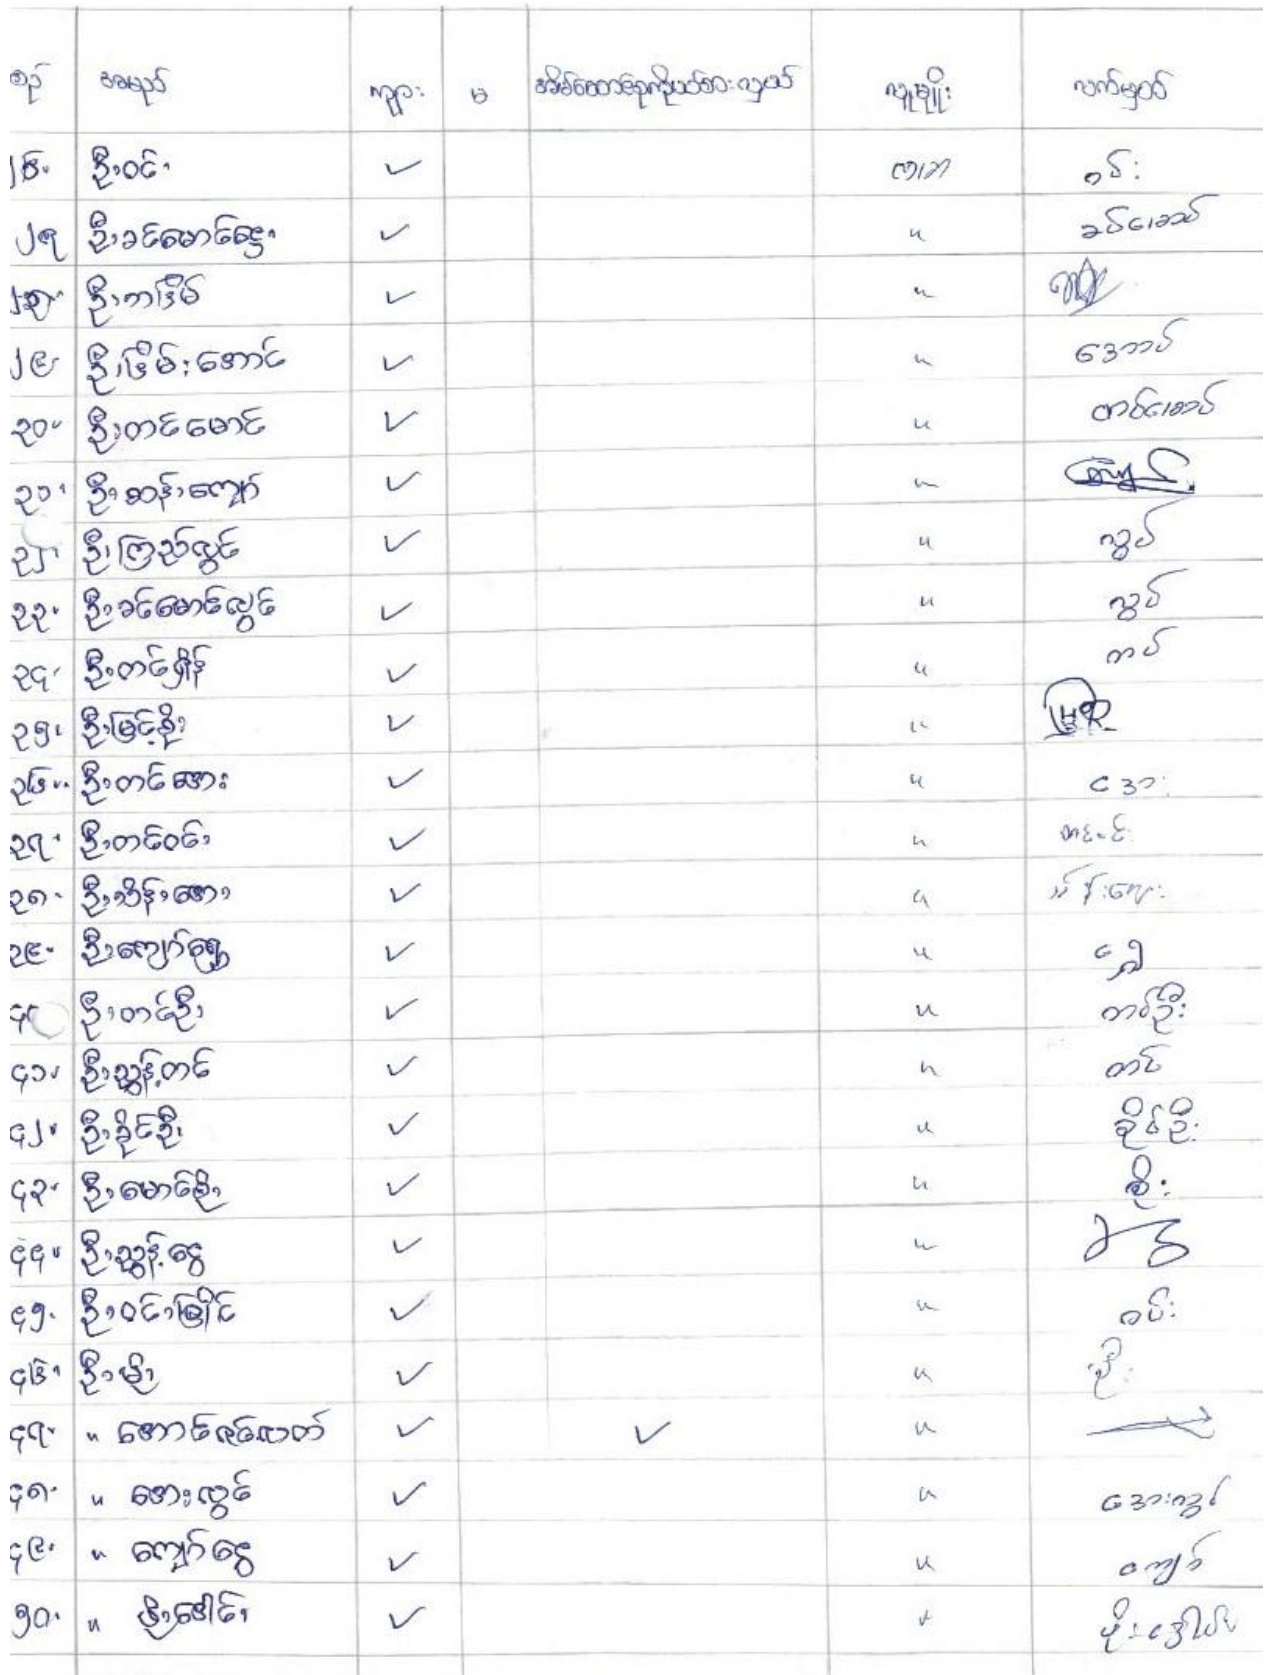 စဉ် အမည် ကျား မ အိမ်ထောင်စုကိုယ်စားလှယ် လူမျိုး လက်မှတ်
၂၆။ ဦးဝင်း ✓ ဗမာ ဝင်း
၂၇ ဦးခင်မောင်ဌေး ✓ " ခင်မောင်
၂၈။ ✓ "
၂၉။ ဦးငြိမ်းအောင် ✓ " အောင်
၃၀။ ဦးတင်မောင် ✓ " တင်မောင်
၃၁။ ဦးဆန်းကျော် ✓ "
၃၂။ ဦးကြည်လွင် ✓ " လွင်
၃၃။ ဦးခင်မောင်လွင် ✓ " လွင်
၃၄။ ဦးတင်ရှိန် ✓ " တင်
၃၅။ ဦးမြင့်စိုး ✓ "
၃၆။ ဦးတင်အေး ✓ " အေး
၃၇။ ဦးတင်ဝင်း ✓ "
၃၈။ ဦးသိန်းအေး ✓ "
၃၉။ ဦးကျော်ရွှေ ✓ " ရွှေ
ဦးတင်ဦး ✓ " တင်ဦး
၄၁။ ဦးညွှန့်တင် ✓ " တင်
၄၂။ ဦးခိုင်ဦး ✓ " ခိုင်ဦး
၄၃။ ဦးမောင်စိုး ✓ " စိုး
၄၄။ ဦးညွှန့်ငွေ ✓ "
၄၅။ ဦးဝင်းမြိုင် ✓ " ဝင်း
၄၆။ ဦးမိုး ✓ "
၄၇။ " အောင်ဇင်လတ် ✓ ✓ "
၄၈။ " အေးလွင် ✓ " အေးလွင်
၄၉။ " ကျော်ငွေ ✓ " ကျော်
၅၀။ " ဖိုးဒေါင်း ✓ " ဖိုးဒေါင်း